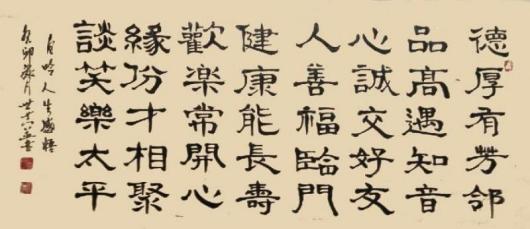 德厚有芳邻
品高遇知音
心誠交好友
人善福臨門
健康能長壽
歡樂常開心
緣份才相聚
談笑樂太平
自吟人生感悟
癸卯